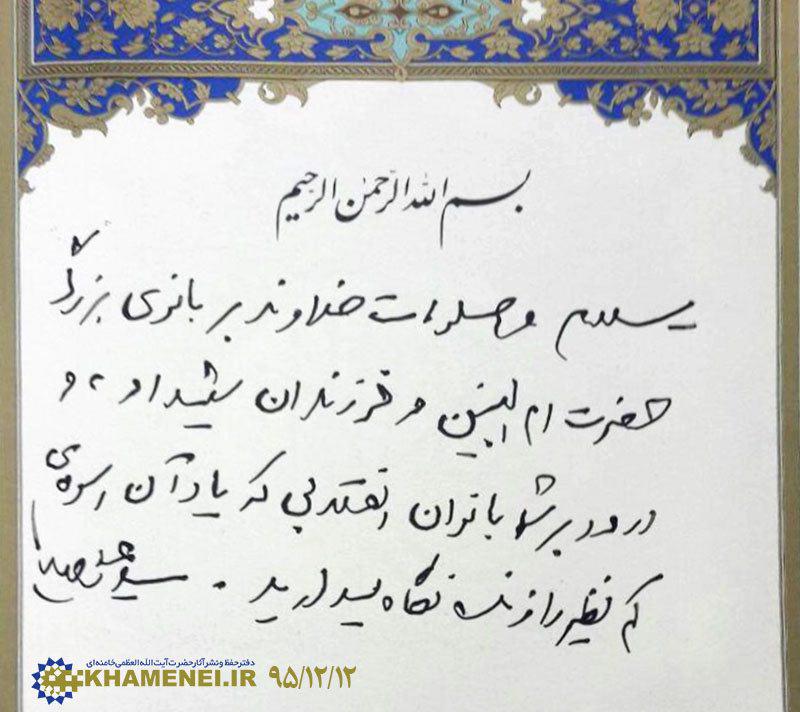 بسم الله الرّحمن الرّحیم
سلام و صلوات خداوند بر بانوی بزرگ
حضرت ام البنین و فرزندان شهید او، و
درود بر شما بانوان انقلابی که یاد آن اسوه‌ی
کم نظیر را زنده نگاه میدارید.
دفتر حفظ و نشر آثار حضرت آیت الله العظمی خامنه‌ای
KHAMENEI.IR ۹۵/۱۲/۱۲